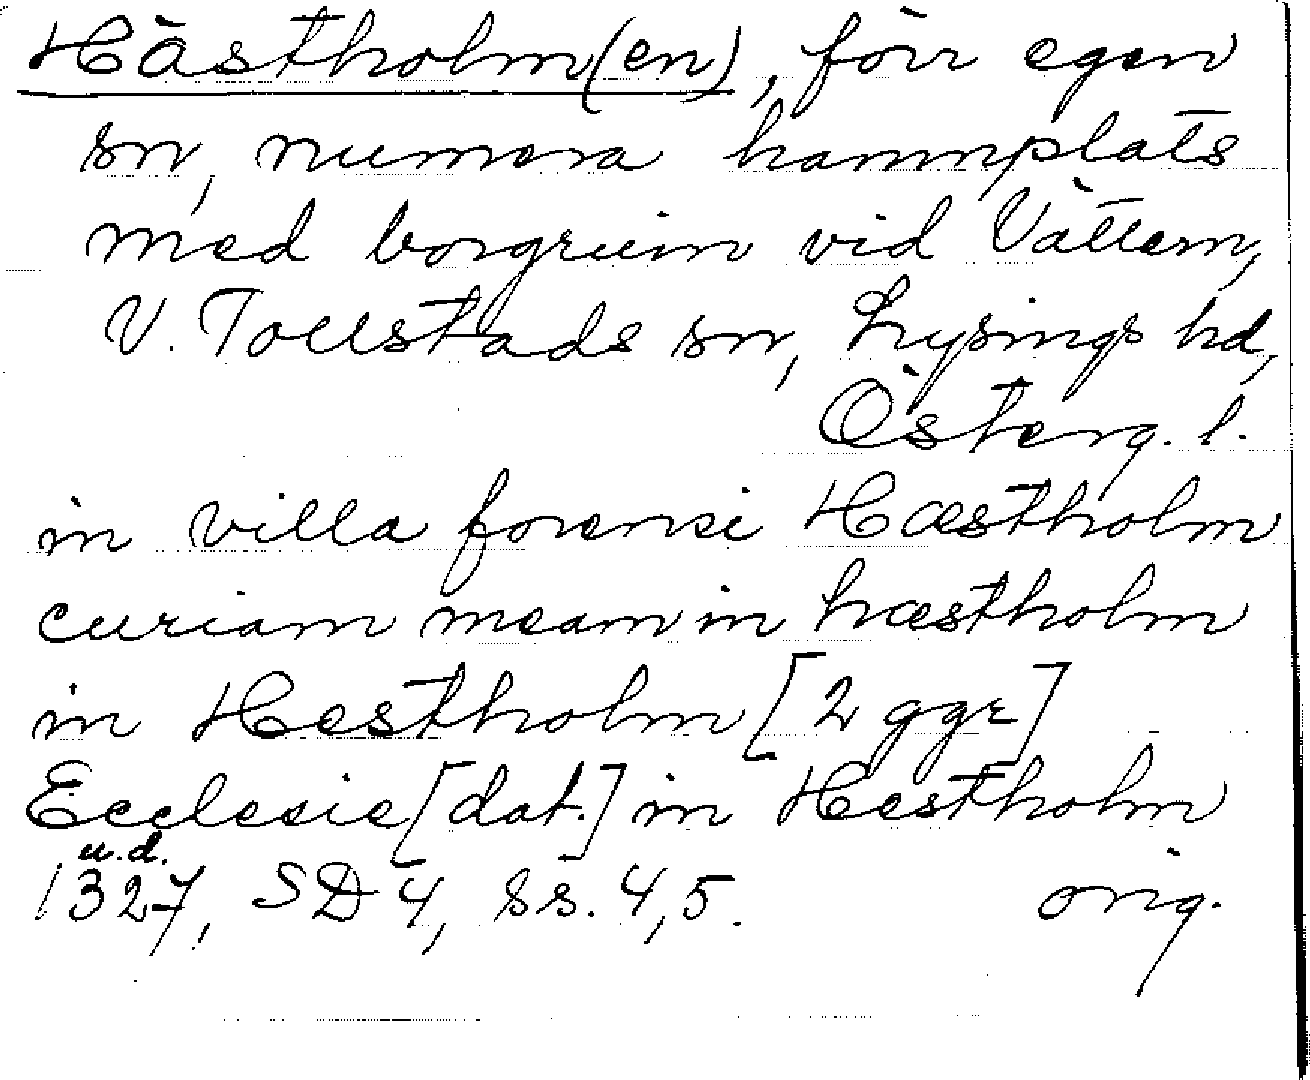 Hästholm(en), förr egen
sn, numera hamnplats
med borgruin vid Vättern,
V. Tollstads sn, Lysings hd,
Österg. l.
in villa forensi Hæstholm
curiam meam in hæstholm
in Hestholm [2 ggr]
Ecclesie [dat.] in Hestholm
u.d.
1327, SD 4, ss. 4,5. orig.